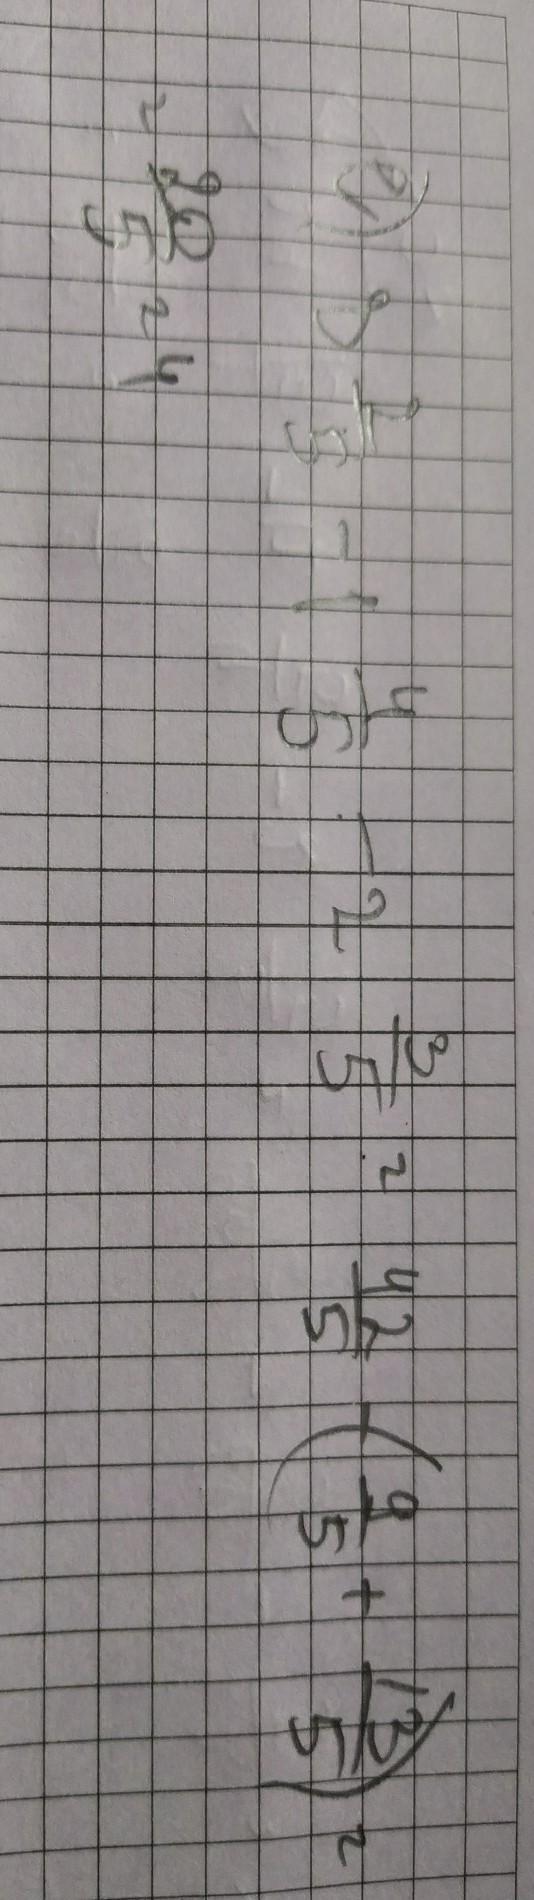 2) 8 2/5 - 1 4/5 - 2 3/5 = 42/5 - (9/5 + 13/5) =
= 20/5 = 4